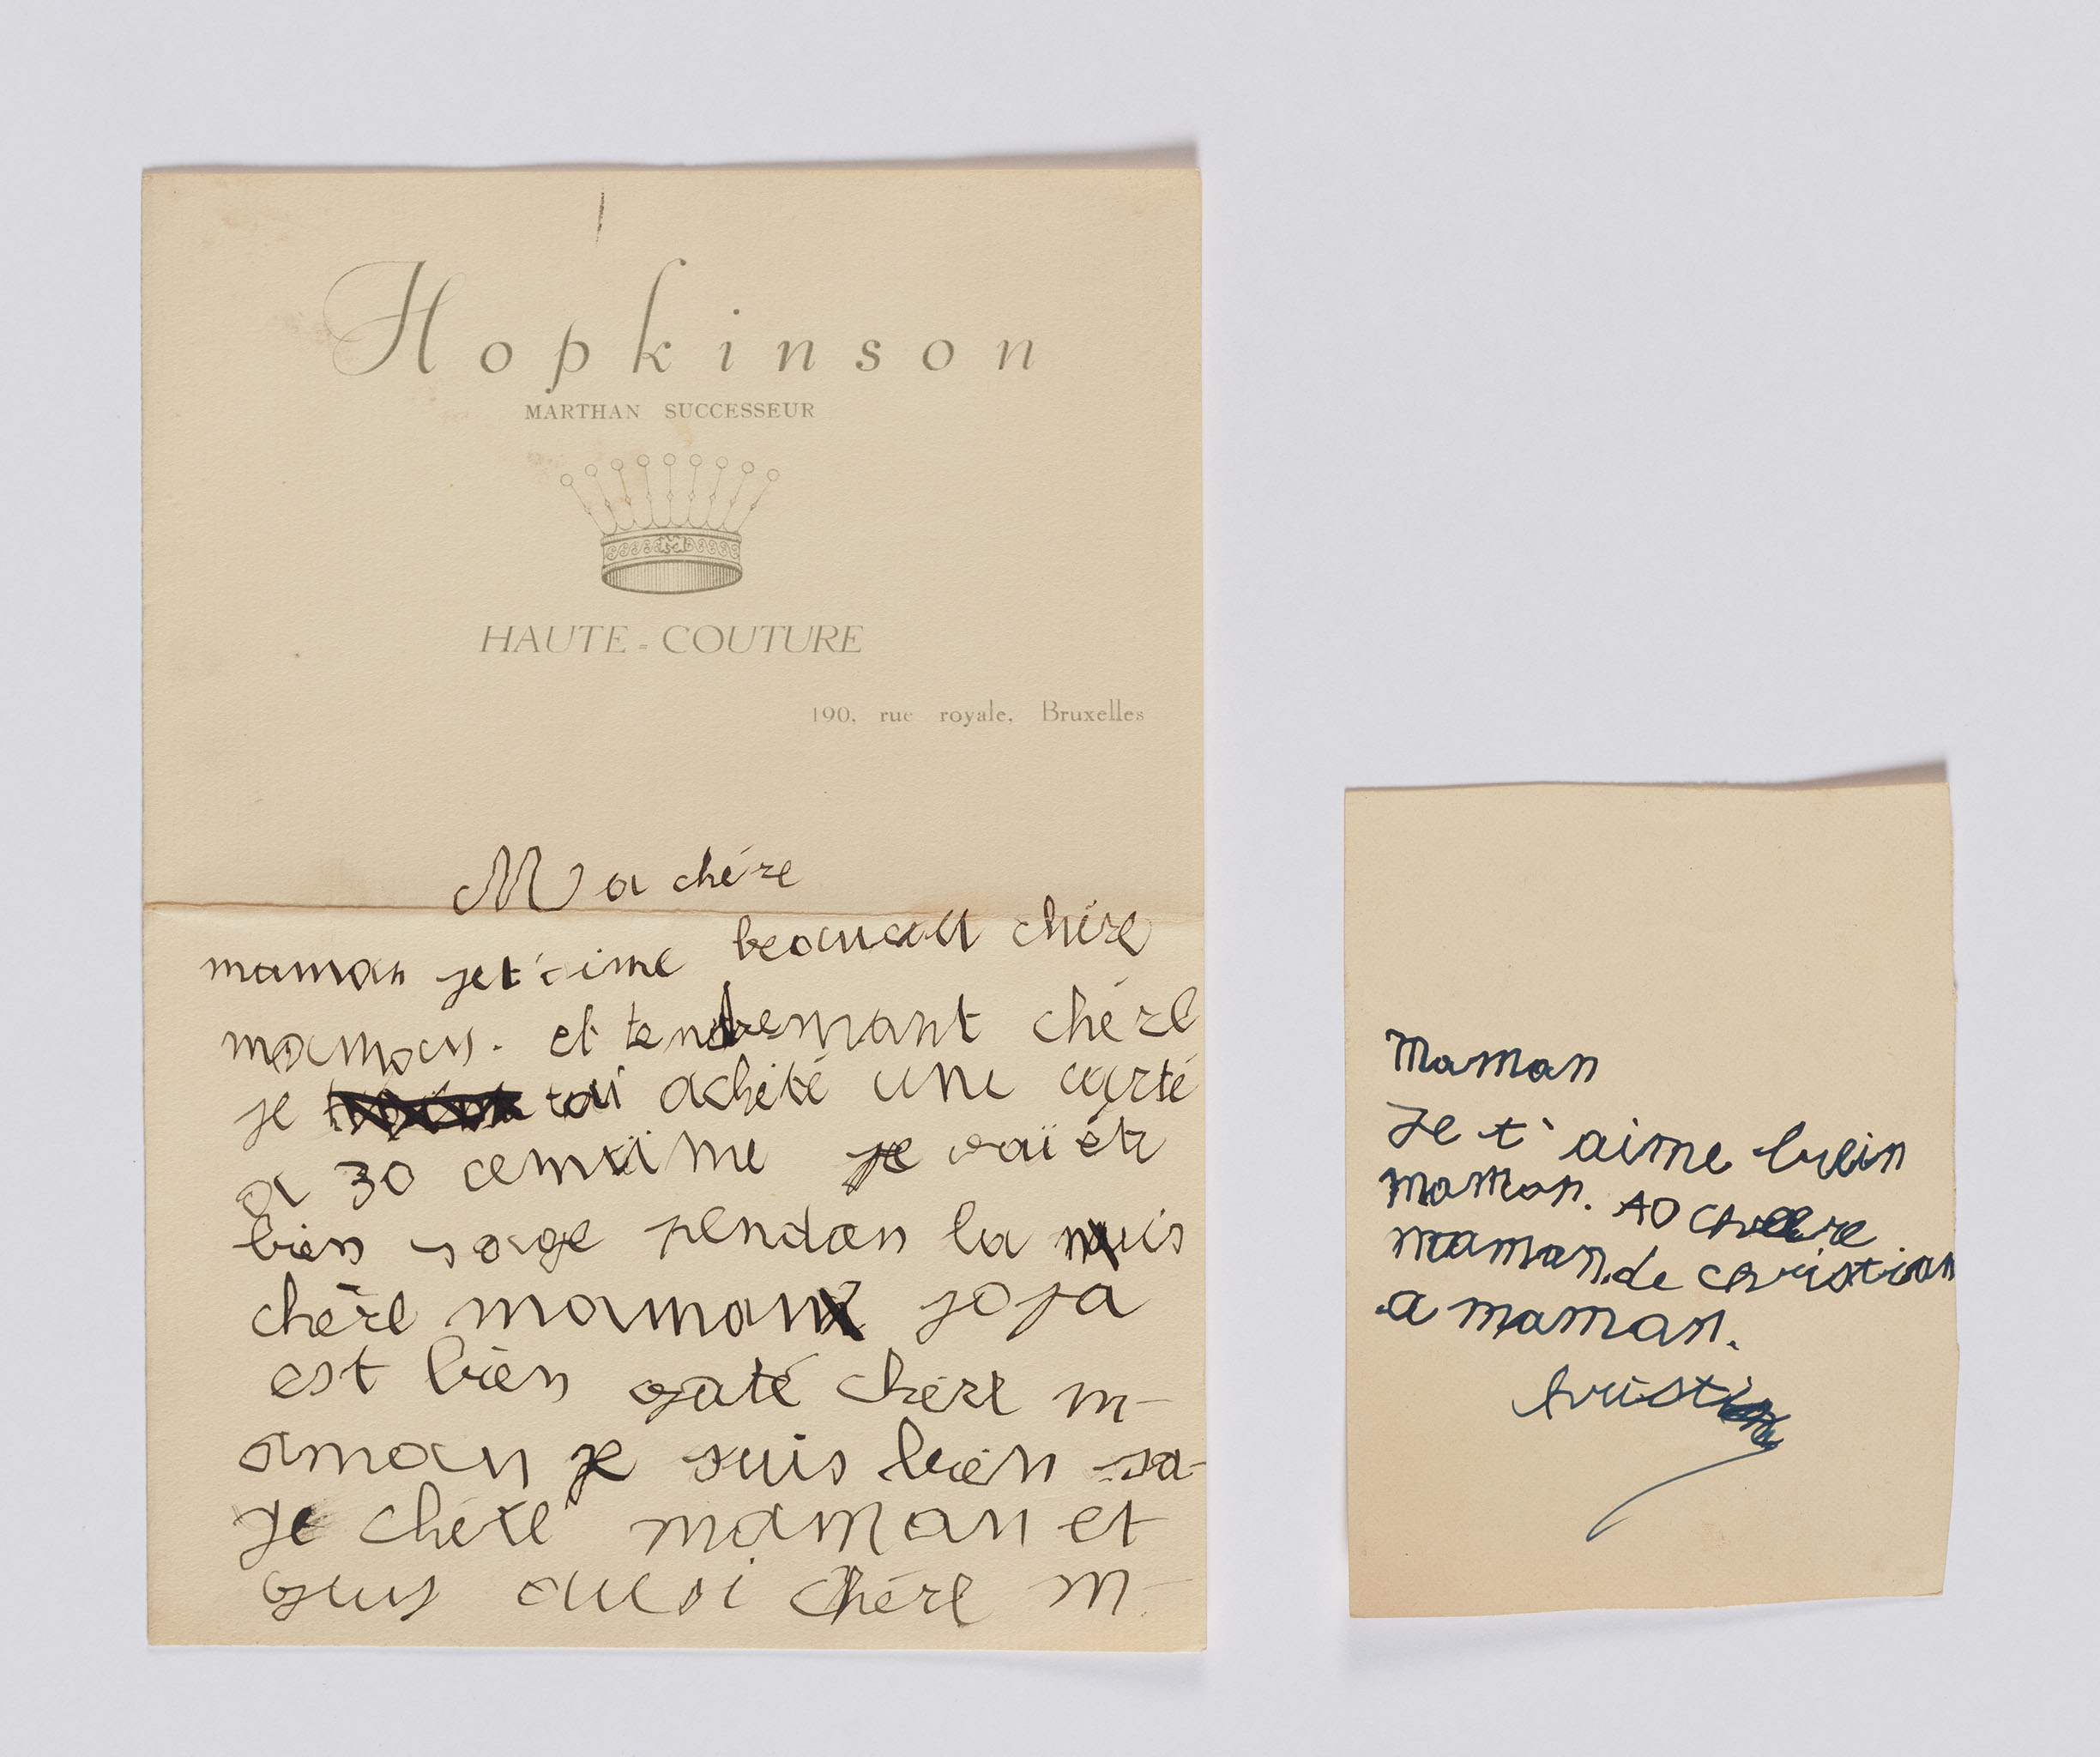 Hopkinson
MARTHAN SUCCESSEUR
HAUTE-COUTURE
190, rue royale, Bruxelles
Ma chére
maman je t'aime beaucou chére
maman. et tendremant chére
je tai achété une carté
a 30 centime je vai étr
bien sage pendan la nuis
chére maman
est bien gaté chére m-
aman je suis bien sa-
ge chére maman et
guy ausi chére m-
Maman
Je t'aime bein
maman. AO chere
maman. de christian
a maman.